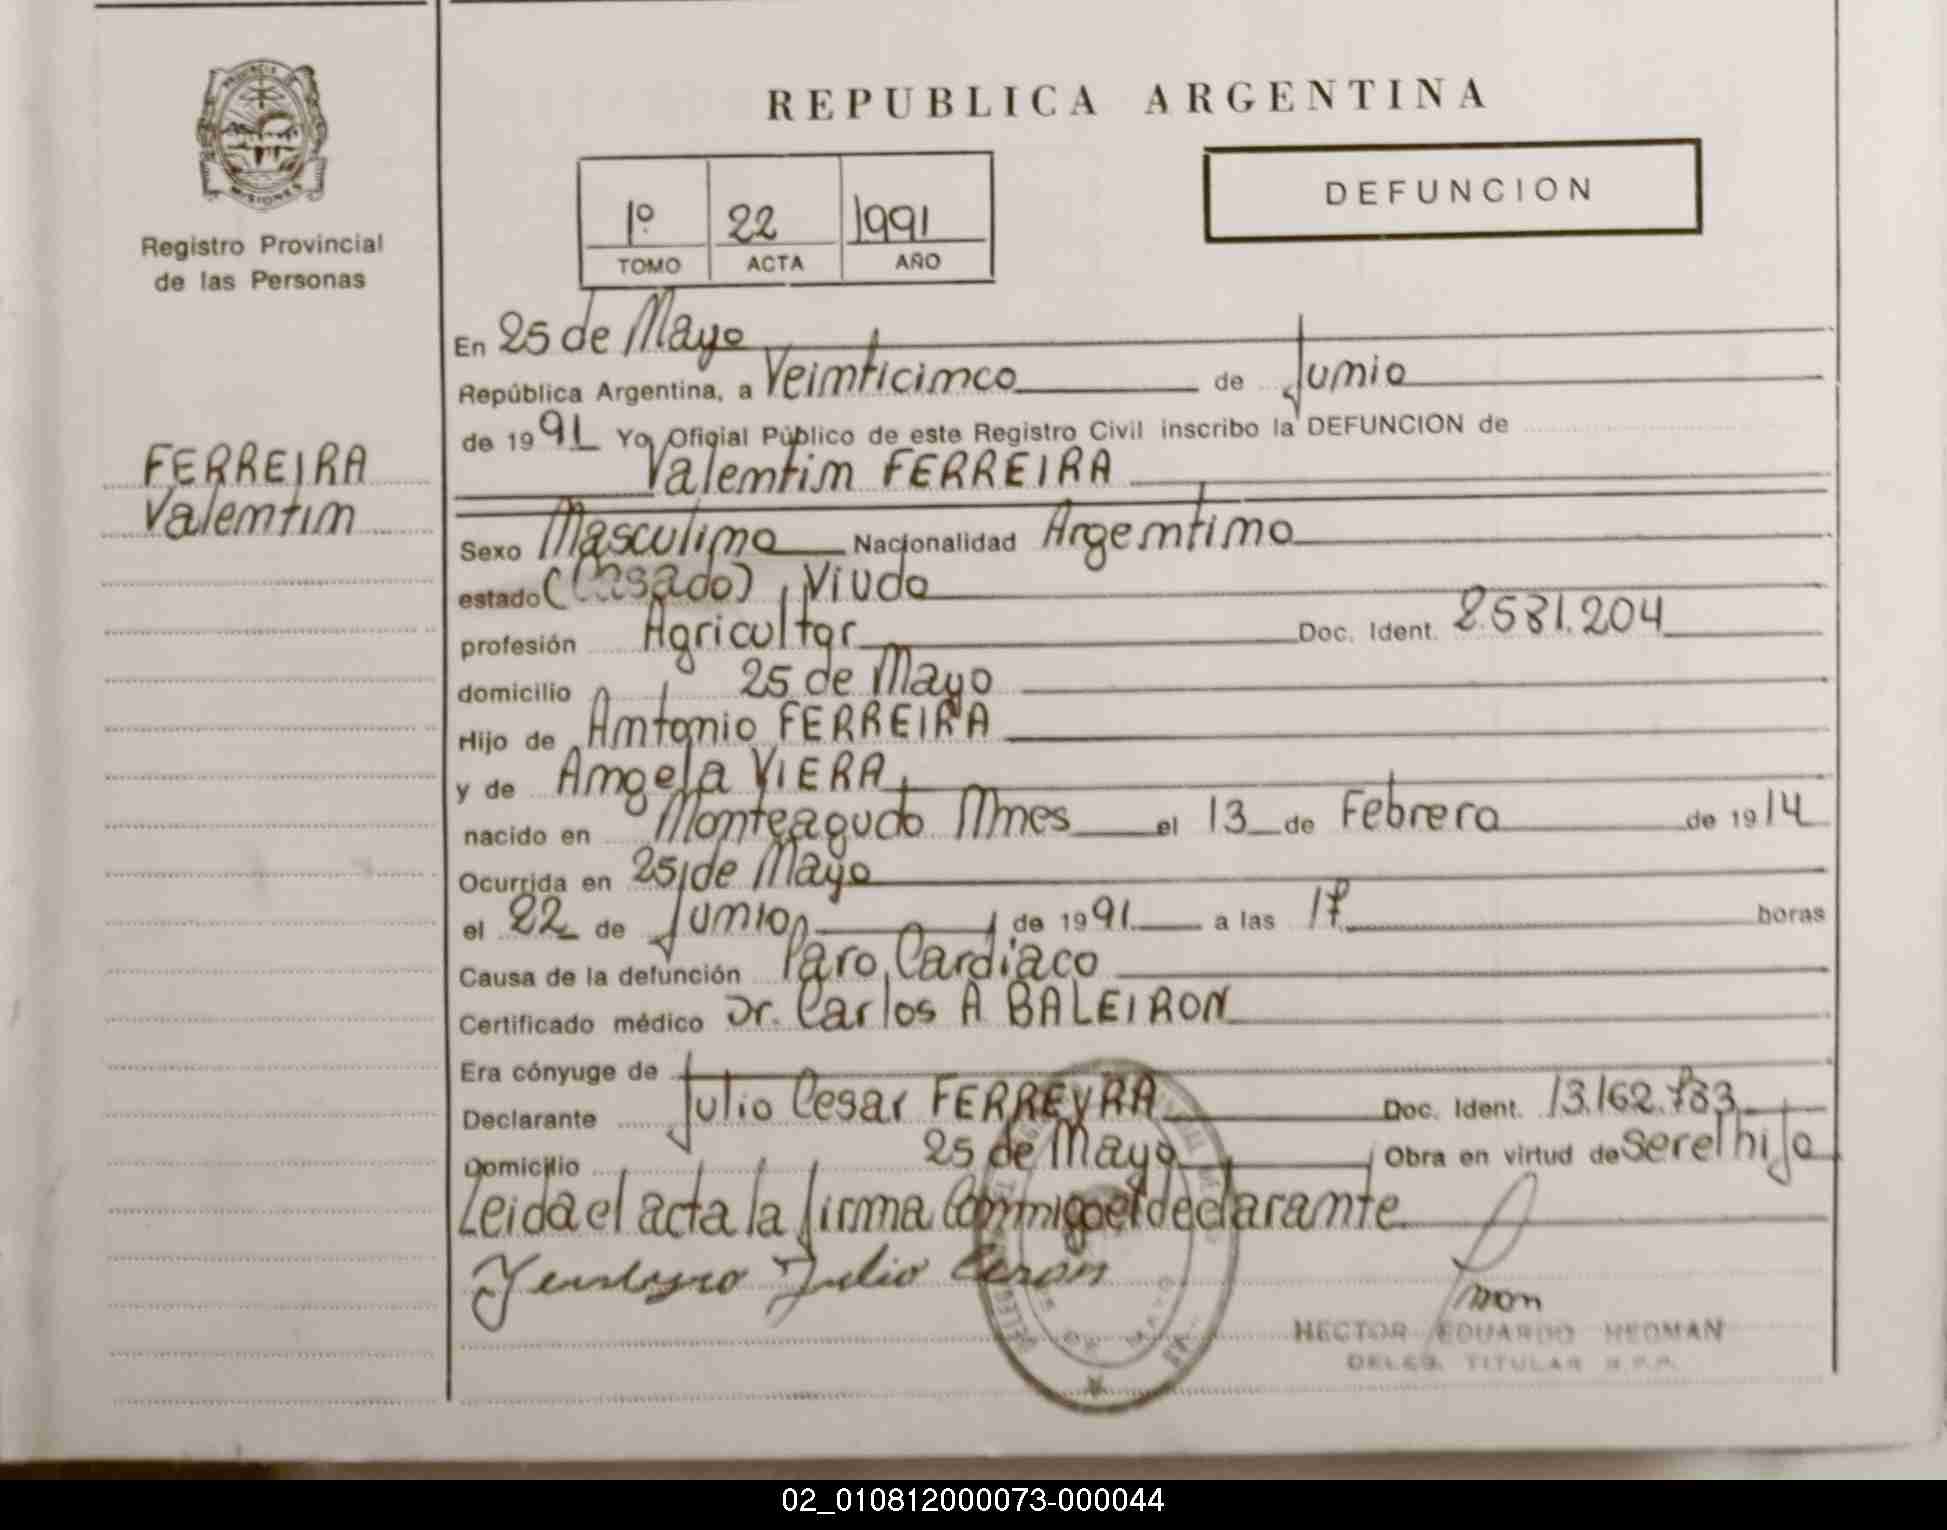 PROVINCIA DE
MISIONES
Registro Provincial
de las Personas
REPUBLICA ARGENTINA
1º 22 1991
TOMO ACTA AÑO
DEFUNCION
FERREIRA
Valentin
En 25 de Mayo
República Argentina, a Veinticinco de Junio
de 1991 Yo, Oficial Público de este Registro Civil inscribo la DEFUNCION de
Valentin FERREIRA
Sexo Masculino Nacionalidad Argentino
estado (Casado) Viudo
profesión Agricultor Doc. Ident. 2.581.204
domicilio 25 de Mayo
Hijo de Antonio FERREIRA
y de Angela VIERA
nacido en Monteagudo Mnes el 13 de Febrero de 1914
Ocurrida en 25 de Mayo
el 22 de Junio de 1991 a las 17 horas
Causa de la defunción Paro Cardiaco
Certificado médico Dr. Carlos A BALEIRON
Era cónyuge de
Declarante Julio Cesar FERREYRA Doc. Ident. 13.162.783
Domicilio 25 de Mayo Obra en virtud de ser el hijo
Leida el acta la firma Conmigo el declarante
Julio Cesar
HECTOR EDUARDO HEDMAN
DELEG. TITULAR R.P.P.
25 DE MAYO
02_010812000073-000044